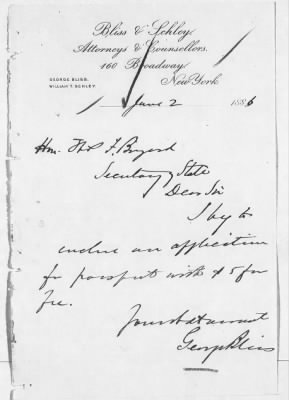 Bliss & Schley,
Attorneys & Counsellors.
160 Broadway
GEORGE BLISS.
WILLIAM T. SCHLEY.
New York
June 2 1886
Hon. Thos F. Bayard
Secretary of State
Dear Sir
I beg to
enclose an application
for passport with $5 for
fee.
Your obt servant
George Bliss